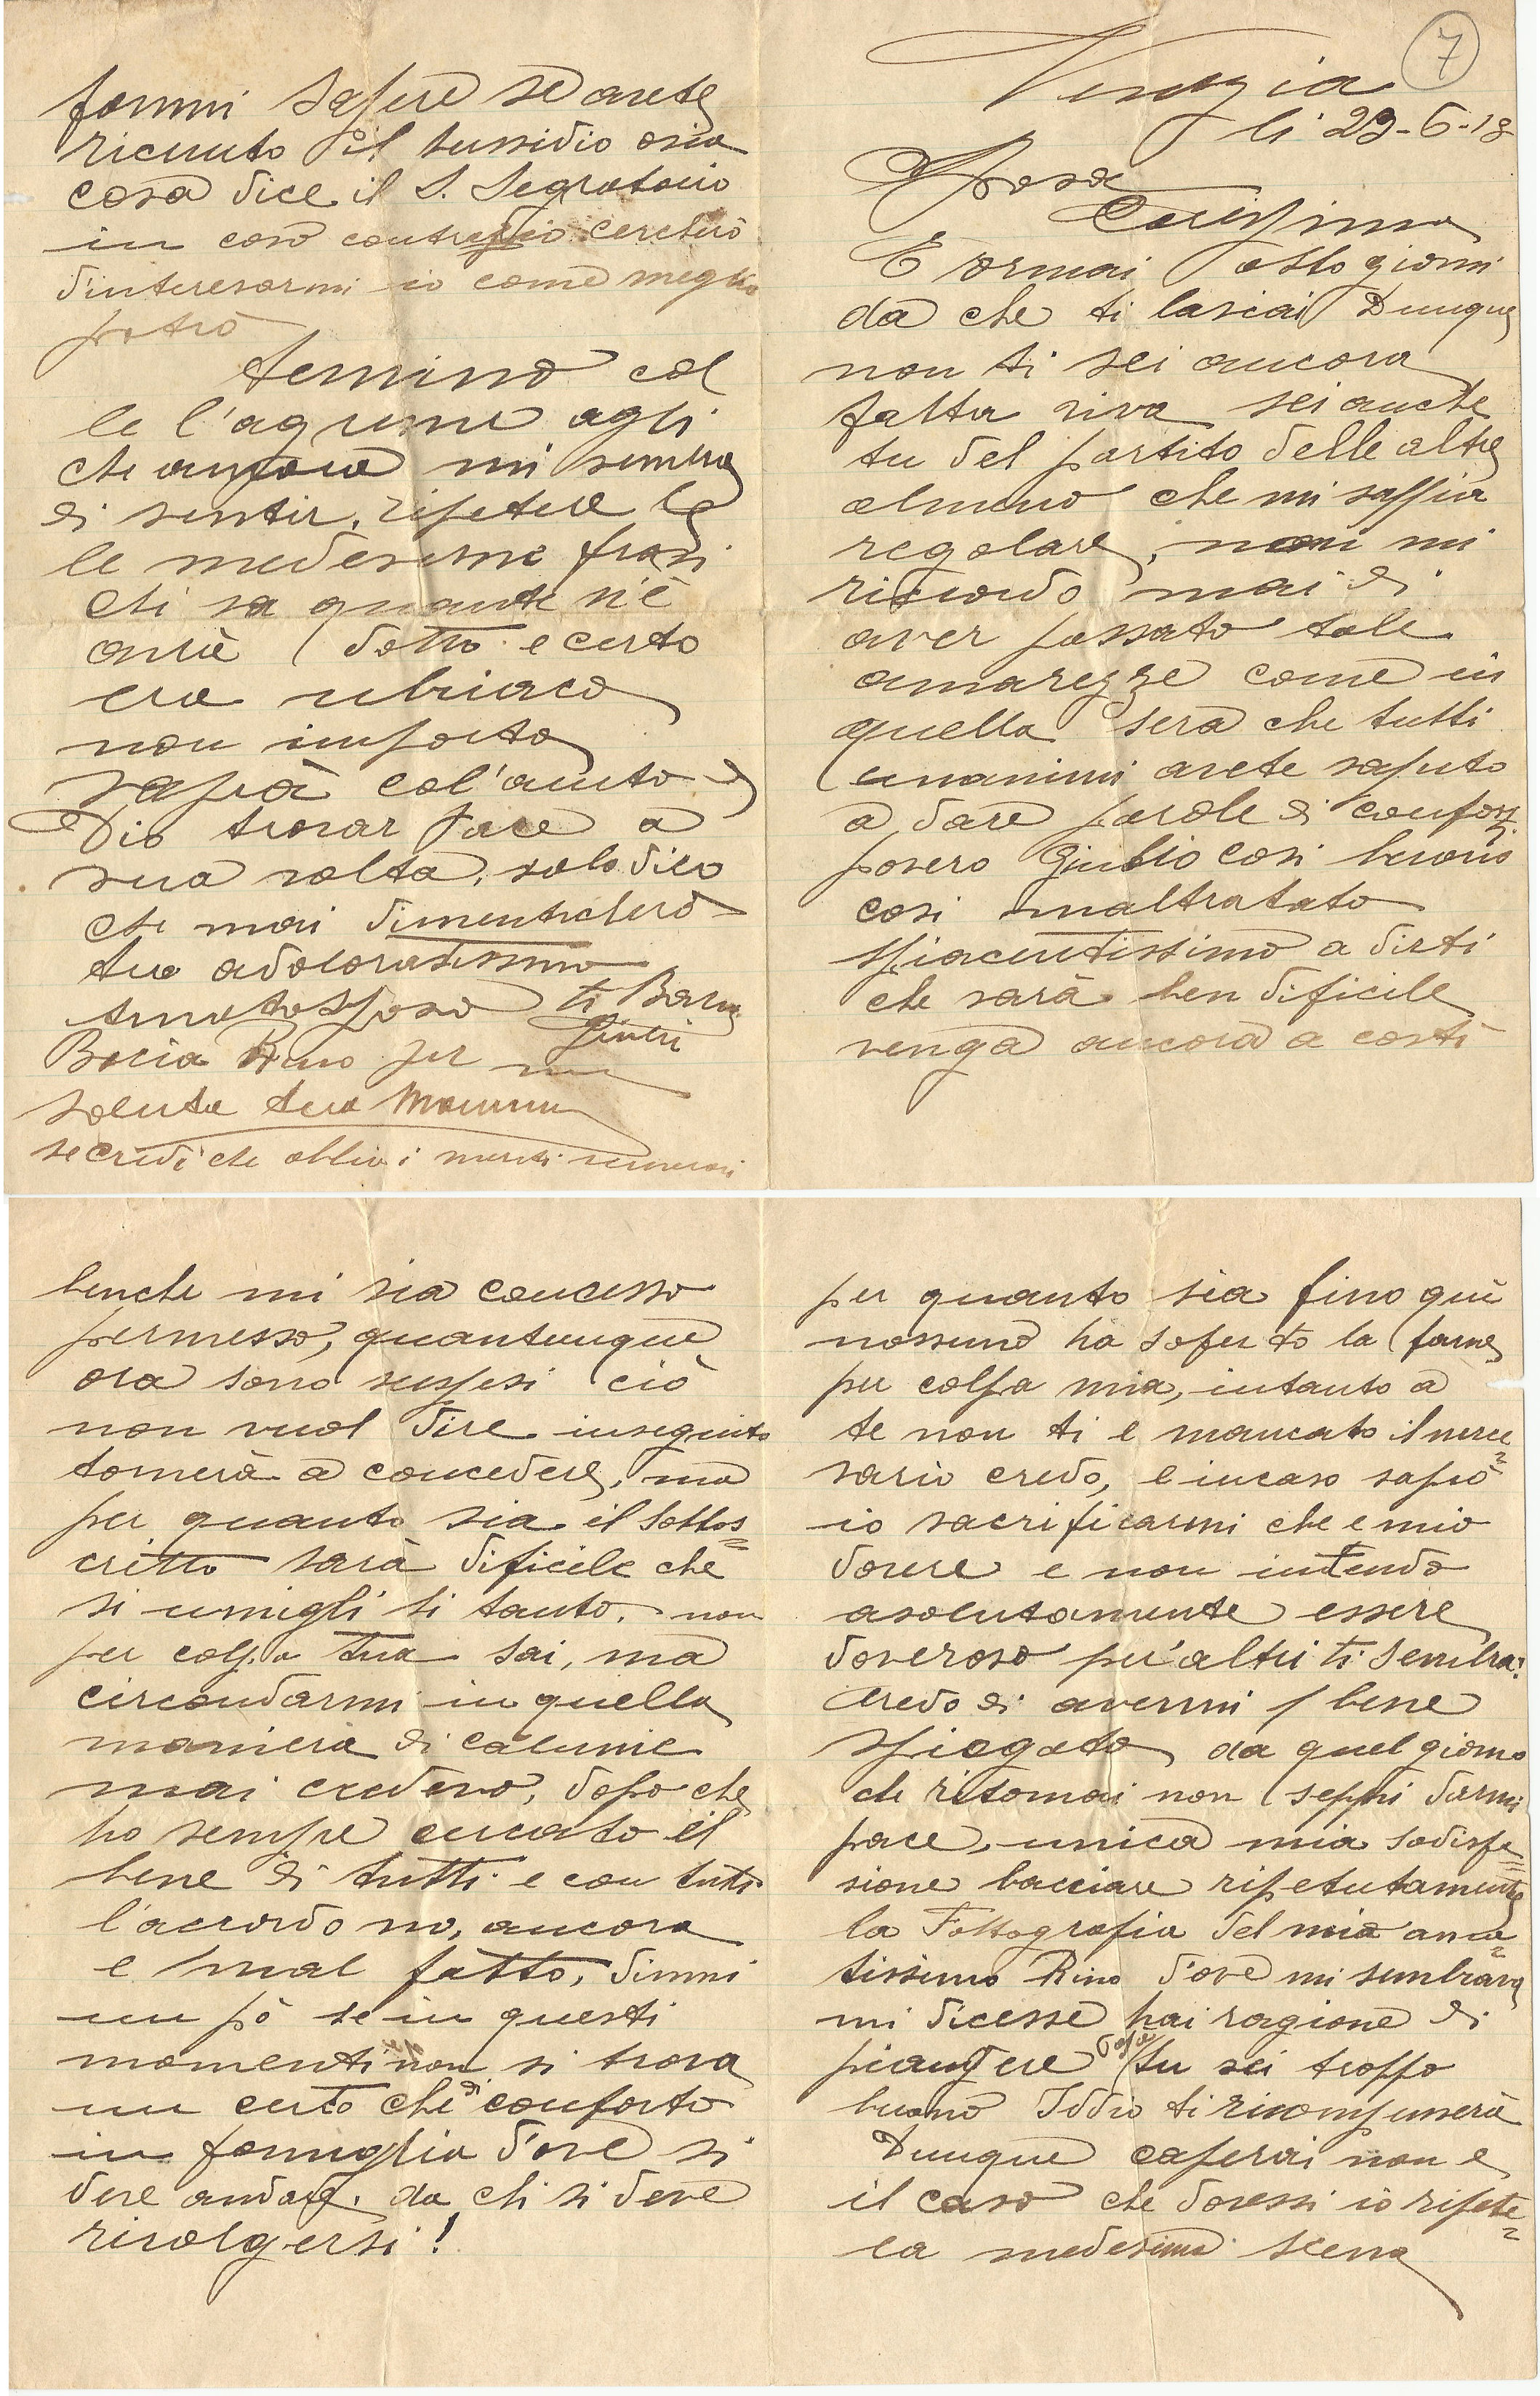 7
Venezia
li 29-6-18
Sposa
Carissima
È ormai otto giorni
da che ti lasciai Dunque
non ti sei ancora
fatta viva sei anche
tu del partito delle altre
almeno che mi sappia
regolare, non mi
ricordo mai di
aver passato tale
amarezze come in
quella sera che tutti
unanimi avete saputo
a dare parole di confor
povero Giulio cosi buono
cosi maltratato
spiacentissimo a dirti
che sarà ben dificile
venga ancora a costì
benche mi sia concesso
permesso, quantunque
ora sono suspesi ciò
non vuol dire inseguito
tornerà a concedere, ma
per quanto sia il sottos=
critto sarà dificile che
si umigli si tanto. non
per colpa tua sai, ma
circondarmi in quella
maniera di calunie
mai credevo, dopo che
ho sempre cercato il
bene di tutti e con tutti
l'accordo no, ancora
e mal fatto, dimmi
un pò se in questi
momenti non si trova
un certo che di conforto
in famiglia dove si
deve andare. da chi si deve
rivolgersi!
per quanto sia fino qui
nossuno ha soferto la fame
per colpa mia, intanto a
te non ti e mancato il neces=
sario credo, e incaso saprò
io sacrificarmi che e mio
dovere e non intendo
asolutamente essere
doveroso per altri ti sembra?
Credo di avermi bene
spiegato da quel giorno
che ritornai non seppi darmi
pace, unica mia sodisfa=
sione bacciare ripetutamente
la Fottografia del mio ama=
tissimo Rino d'ove mi sembrava
mi dicesse hai ragione di
piangere papà tu sei troppo
buono Iddio ti ricompenserà
Dunque caperai non e
il caso che dovessi io ripete=
la medesima scena
fammi sapere se avete
ricevuto il sussidio osia
cosa dice il S. Segratario
in caso contrario cercherò
d'interesarmi io come meglio
potrò
termino col
le l'agrime agli
che ancora mi sembra
di sentir, ripetere le
le medesime frasi
chi sa quante n'è
avrà detto e certo
era ubriaco
non importa
saprà col'aiuto di
Dio trovar pace a
sua volta, solo dico
che mai dimenticherò
tuo adoloratissimo
Amatosposo ti Bacia
Giulio
Bacia Rino per me
saluta tua Mamma
se credi che abbia i menti numerosi